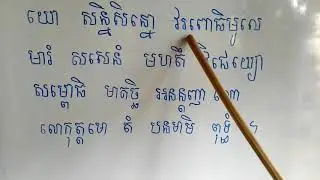 យោ សន្និសិន្នោ វរពោធិមូលេ
មារំ សសេនំ មហតឹ វិជេយ្យោ
សម្ពោធិ មាគច្ឆិ អនន្តញា ណោ
លោកុត្តមោ តំ បនមាមិ ពុទ្ធំ ។